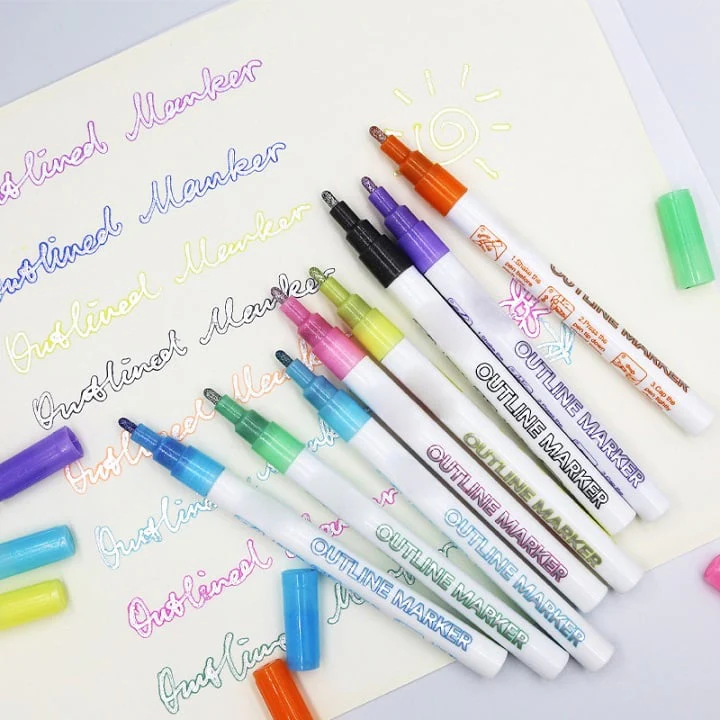 Outlined Marker
Outlined Marker
Outlined Marker
Outlined Marker
Outlined Marker
Outlined
Outlined Marker
Outlined
OUTLINE MARKER
1.Shake the
pen before
2.Press the
pen tip down
3.Cap the
pen tightly
OUTLINE MARKER
OUTLINE MARKER
OUTLINE MARKER
OUTLINE MARKER
OUTLINE MARKER
OUTLINE MARKER
OUTLINE MARKER